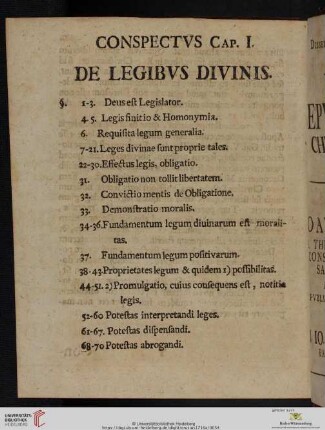 CONSPECTVS CAP. I.
DE LEGIBVS DIVINIS.
§. 1-3. Deus est Legislator.
4-5. Legis finitio & Homonymia.
6. Requisita legum generalia.
7-21. Leges divinae sunt proprie tales.
22-30. Effectus legis, obligatio.
31. Obligatio non tollit libertatem.
32. Convictio mentis de Obligatione.
33. Demonstratio moralis.
34-36. Fundamentum legum divinarum est morali-
tas.
37. Fundamentum legum positivarum.
38-43. Proprietates legum & quidem 1) possibilitas.
44-51. 2) Promulgatio, cuius consequens est, notitia
legis.
52-60 Potestas interpretandi leges.
61-67. Potestas dispensandi.
68-70 Potestas abrogandi.
UNIVERSITÄTS-
BIBLIOTHEK
HEIDELBERG
© Universitätsbibliothek Heidelberg
Baden-Württemberg